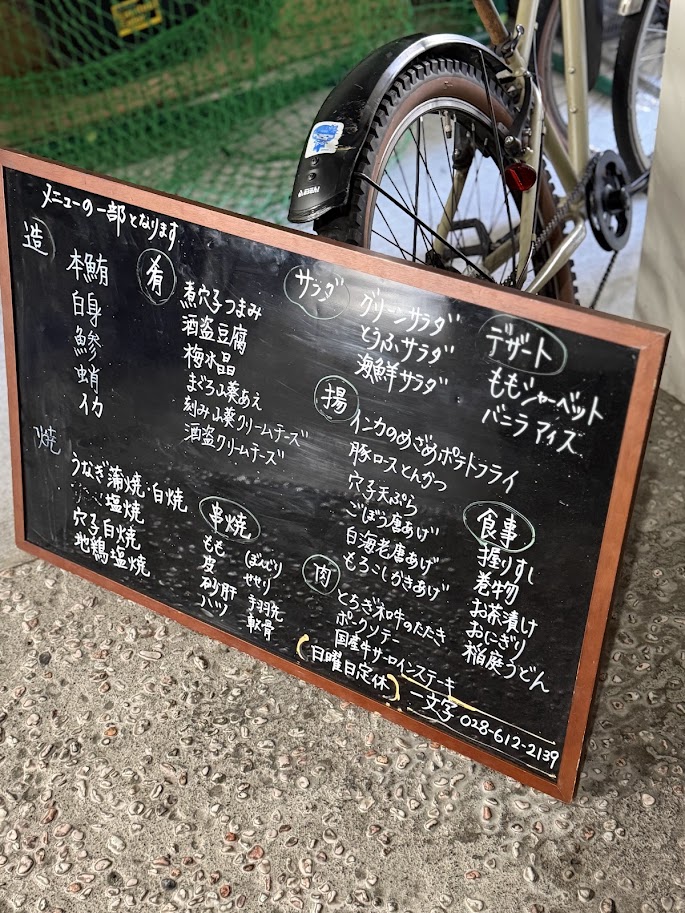 メニューの一部となります
造
本鮪
白身
鯵
蛸
イカ
肴
煮穴子つまみ
酒盗豆腐
梅水晶
まぐろ山葵あえ
刻み山葵クリームチーズ
酒盗クリームチーズ
サラダ
グリーンサラダ
とうふサラダ
海鮮サラダ
デザート
ももシャーベット
バニラアイズ
揚
インカのめざめポテトフライ
豚ロースとんかつ
穴子天ぷら
ごぼう唐あげ
白海老唐あげ
もろこしかきあげ
焼
うなぎ蒲焼・白焼
塩焼
穴子白焼
地鶏塩焼
串焼
もも
皮
砂肝
ハツ
ぼんぢり
せせり
手羽先
軟骨
肉
とちぎ和牛のたたき
ポークソテー
国産牛サーロインステーキ
食事
握りすし
巻物
お茶漬け
おにぎり
稲庭うどん
(日曜日定休)
一文字 028-612-2139